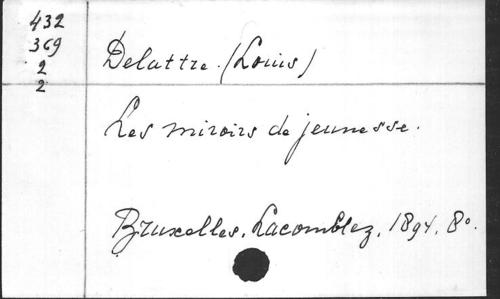 432
369
2
2
Delattre. (Louis)
Les miroirs de jeunesse.
Bruxelles, Lacomblez, 1894, 8º.